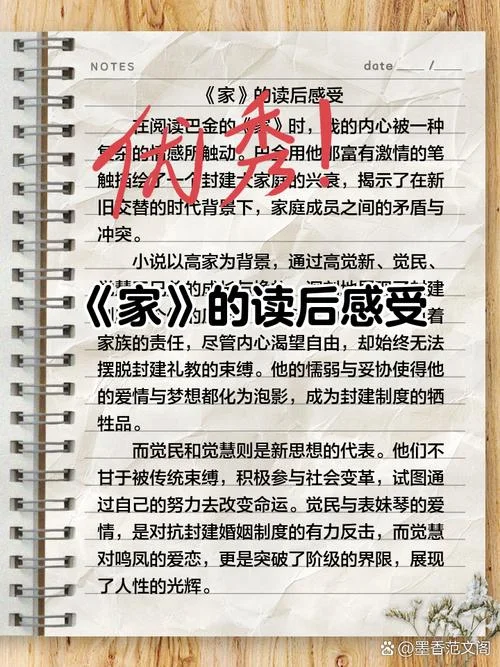 NOTES
date ___ / ___
《家》的读后感受
在阅读巴金的《家》时，我的内心被一种
复杂的情感所触动。巴金用他那富有激情的笔
触描绘了一个封建大家庭的兴衰，揭示了在新
旧交替的时代背景下，家庭成员之间的矛盾与
冲突。
优秀!
小说以高家为背景，通过高觉新、觉民、
《家》的读后感受
家族的责任，尽管内心渴望自由，却始终无法
摆脱封建礼教的束缚。他的懦弱与妥协使得他
的爱情与梦想都化为泡影，成为封建制度的牺
牲品。
而觉民和觉慧则是新思想的代表。他们不
甘于被传统束缚，积极参与社会变革，试图通
过自己的努力去改变命运。觉民与表妹琴的爱
情，是对抗封建婚姻制度的有力反击，而觉慧
对鸣凤的爱恋，更是突破了阶级的界限，展现
了人性的光辉。
@墨香范文阁